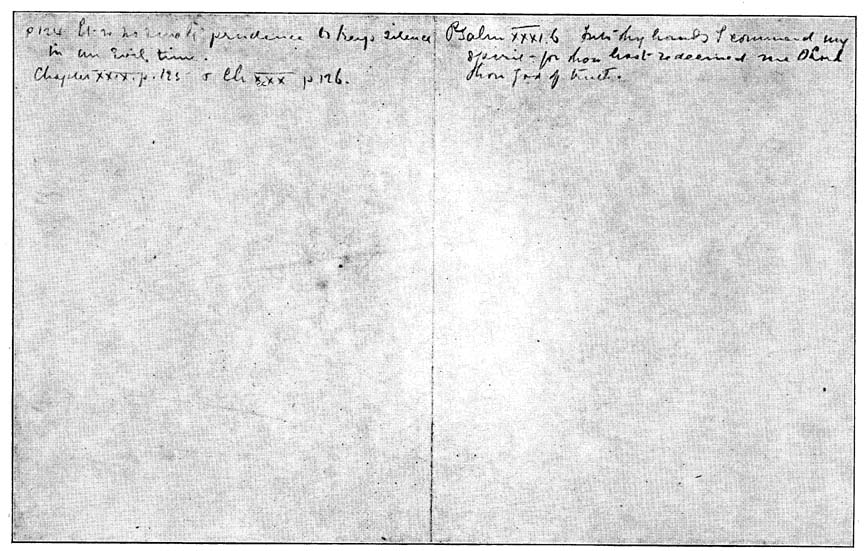 p 124 It is no small prudence to keep silence
in an evil time.
Chapter XXIX. p. 125 & Ch XXX p 126.
Psalm XXXI.6 Into thy hands I commend my
spirit - for thou hast redeemed me O Lord
thou God of truth.